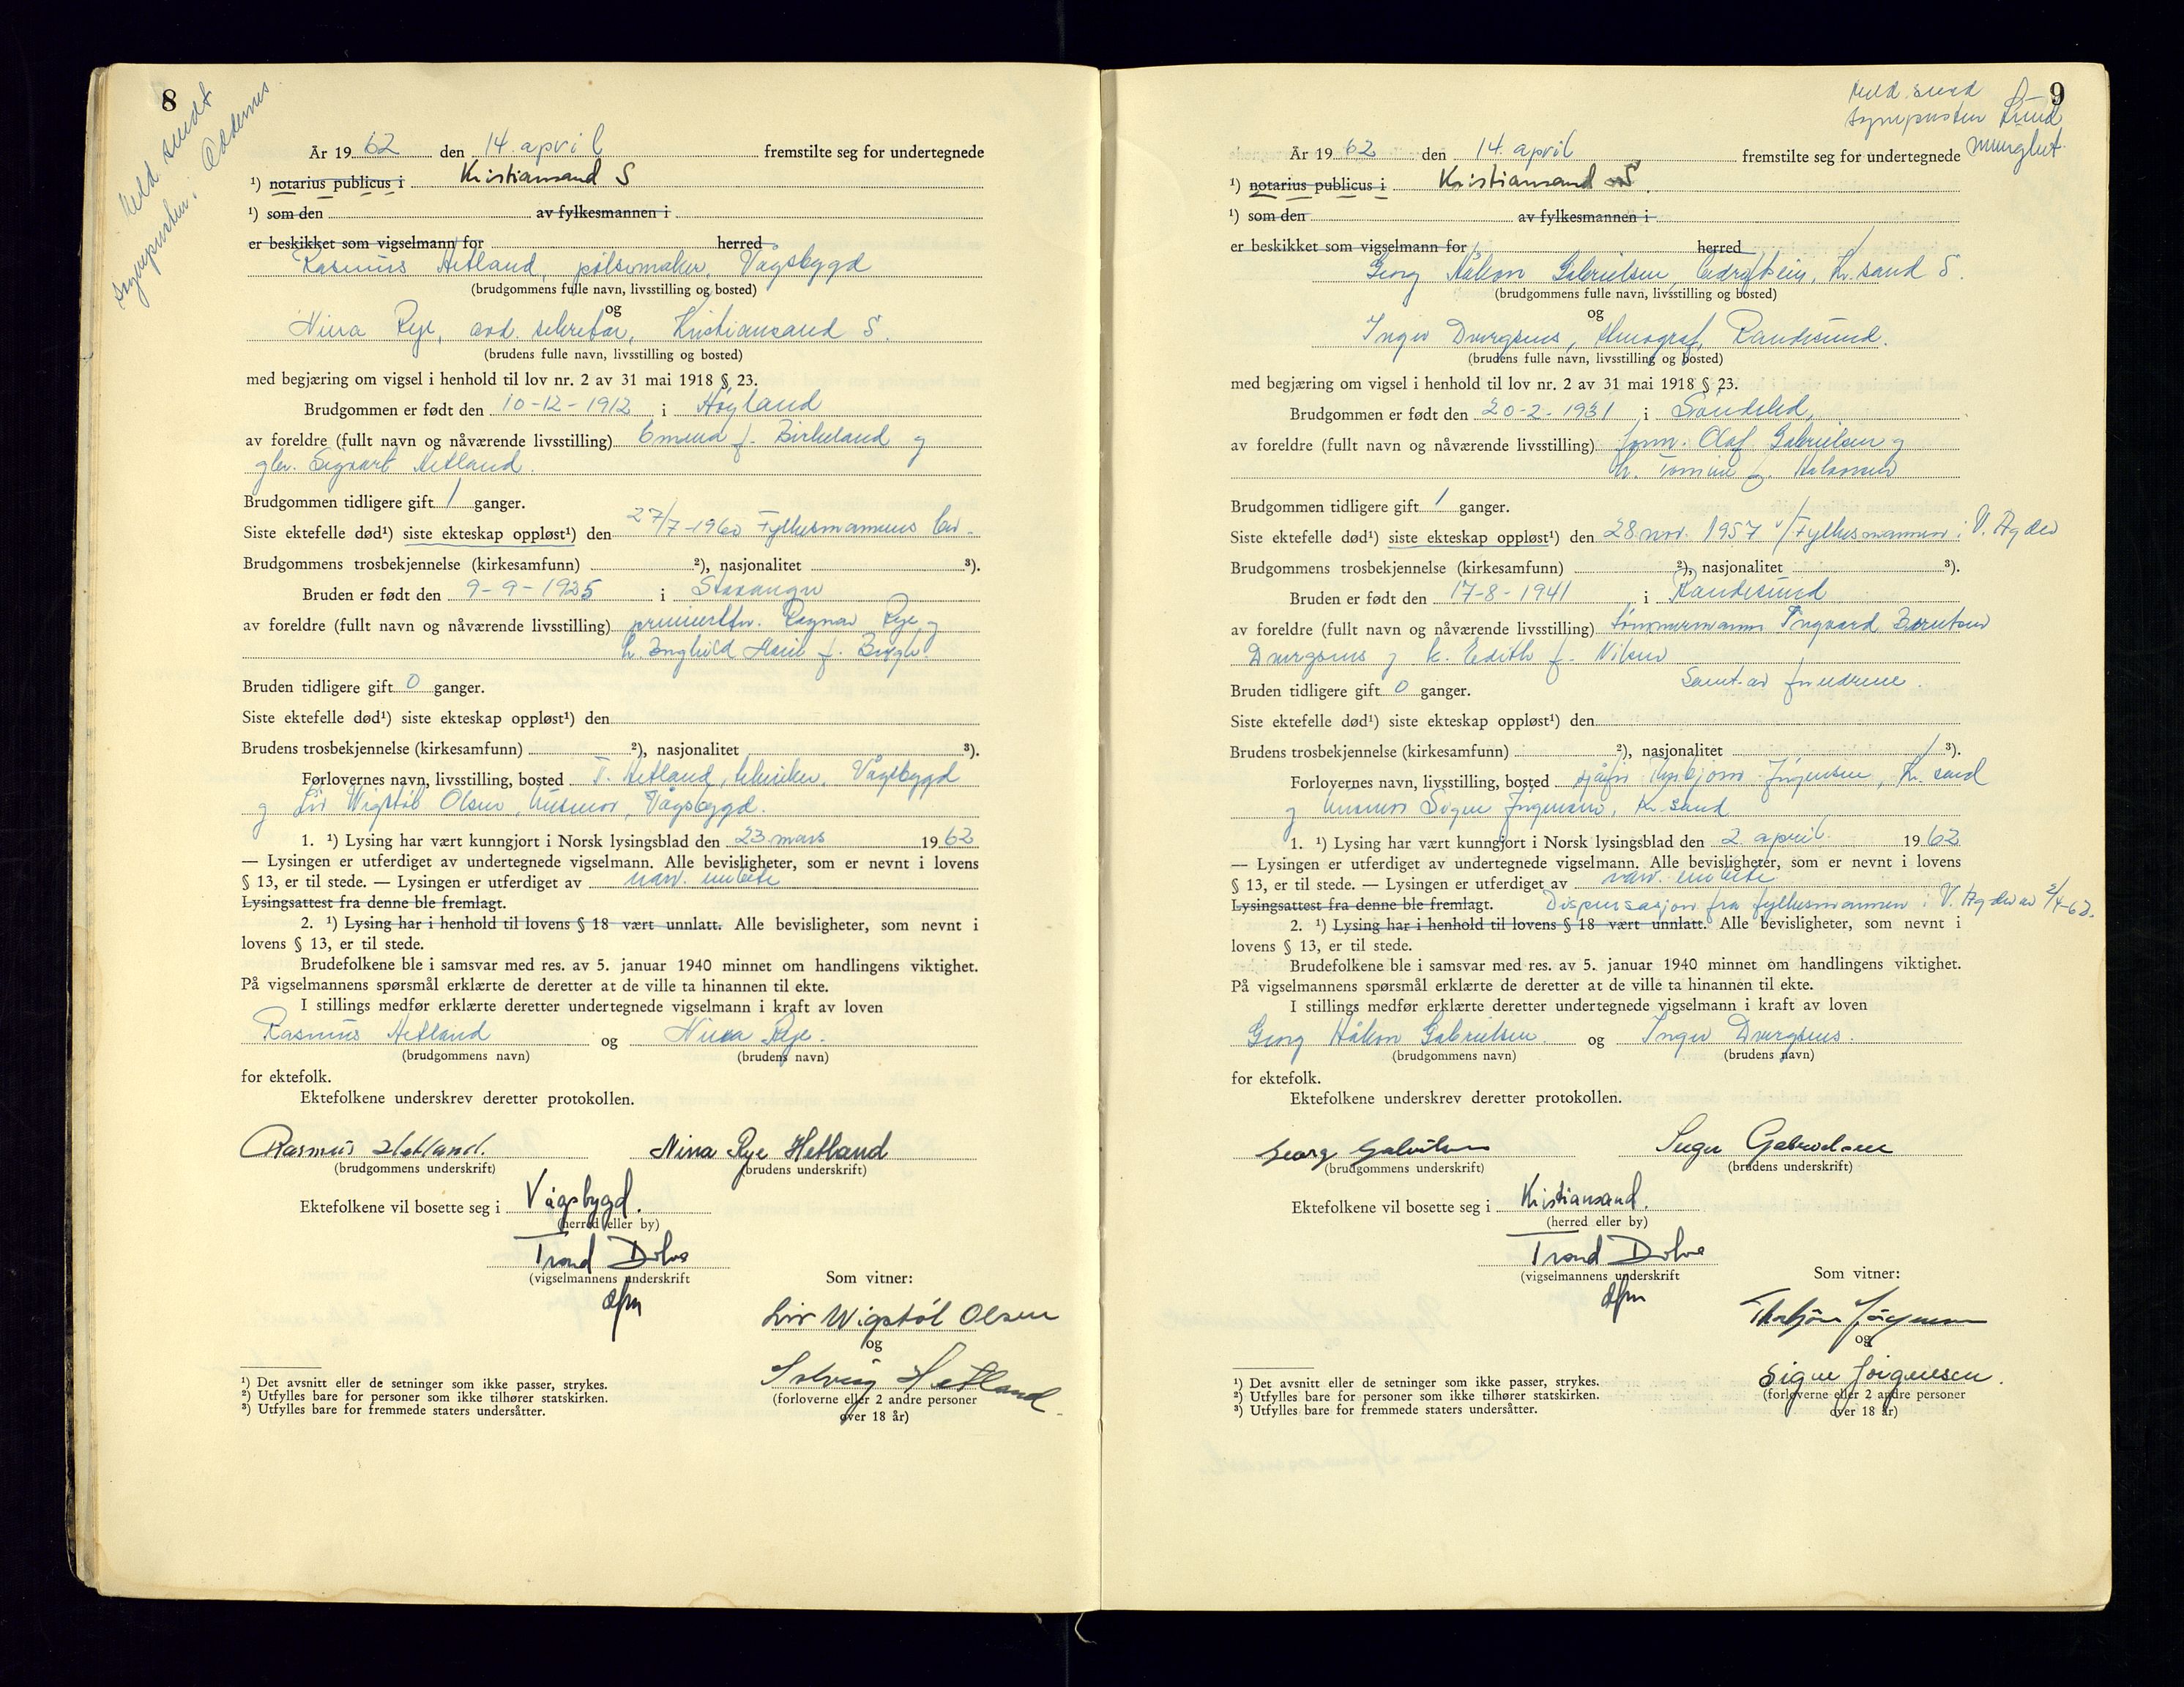 8
Meld. sendt
Oddernes
År 1962 den 14. april fremstilte seg for undertegnede
¹) notarius publicus i Kristiansand S
¹) som den av fylkesmannen i
er beskikket som vigselmann for herred
Rasmus Hetland, pølsemaker, Vågsbygd
(brudgommens fulle navn, livsstilling og bosted)
og
Nina Rye, avd. sekretær, Kristiansand S.
(brudens fulle navn, livsstilling og bosted)
med begjæring om vigsel i henhold til lov nr. 2 av 31 mai 1918 § 23.
Brudgommen er født den 10-12-1912 i Høyland
av foreldre (fullt navn og nåværende livsstilling) Emma f. Birkeland og
gbr. Sigvart Hetland.
Brudgommen tidligere gift 1 ganger.
Siste ektefelle død¹) siste ekteskap oppløst¹) den 27/7-1960 Fylkesmannens bev.
Brudgommens trosbekjennelse (kirkesamfunn) ²), nasjonalitet ³).
Bruden er født den 9-9-1925 i Stavanger
av foreldre (fullt navn og nåværende livsstilling) Ragnar Rye og
h. Borghild Marie f. Berge.
Bruden tidligere gift 0 ganger.
Siste ektefelle død¹) siste ekteskap oppløst¹) den
Brudens trosbekjennelse (kirkesamfunn) ²), nasjonalitet ³).
Forlovernes navn, livsstilling, bosted T. Hetland, tekniker, Vågsbygd
og Liv Wigstøl Olsen, husmor, Vågsbygd.
1. ¹) Lysing har vært kunngjort i Norsk lysingsblad den 23 mars 1962
— Lysingen er utferdiget av undertegnede vigselmann. Alle bevisligheter, som er nevnt i lovens
§ 13, er til stede. — Lysingen er utferdiget av nærv. embete
Lysingsattest fra denne ble fremlagt.
2. ¹) Lysing har i henhold til lovens § 18 vært unnlatt. Alle bevisligheter, som nevnt i
lovens § 13, er til stede.
Brudefolkene ble i samsvar med res. av 5. januar 1940 minnet om handlingens viktighet.
På vigselmannens spørsmål erklærte de deretter at de ville ta hinannen til ekte.
I stillings medfør erklærte deretter undertegnede vigselmann i kraft av loven
Rasmus Hetland og Nina Rye.
(brudgommens navn) (brudens navn)
for ektefolk.
Ektefolkene underskrev deretter protokollen.
Rasmus Hetland. Nina Rye Hetland
(brudgommens underskrift) (brudens underskrift)
Ektefolkene vil bosette seg i Vågsbygd.
(herred eller by)
Trond Dolva
(vigselmannens underskrift
dfm
Som vitner:
Liv Wigstøl Olsen
og
Solveig Hetland
(forloverne eller 2 andre personer
over 18 år)
¹) Det avsnitt eller de setninger som ikke passer, strykes.
²) Utfylles bare for personer som ikke tilhører statskirken.
³) Utfylles bare for fremmede staters undersåtter.
9
Meld. send
sognepresten Lund
menighet
År 1962 den 14. april fremstilte seg for undertegnede
¹) notarius publicus i Kristiansand S.
¹) som den av fylkesmannen i
er beskikket som vigselmann for herred
Georg Håkon Gabrielsen, Kr.sand S.
(brudgommens fulle navn, livsstilling og bosted)
og
Inger Dvergsnes, stenograf, Randesund.
(brudens fulle navn, livsstilling og bosted)
med begjæring om vigsel i henhold til lov nr. 2 av 31 mai 1918 § 23.
Brudgommen er født den 20-2-1931 i Søndeled,
av foreldre (fullt navn og nåværende livsstilling) Olaf Gabrielsen og
h. Tomine f.
Brudgommen tidligere gift 1 ganger.
Siste ektefelle død¹) siste ekteskap oppløst¹) den 28 nov. 1957 v/Fylkesmannen i V. Agder
Brudgommens trosbekjennelse (kirkesamfunn) ²), nasjonalitet ³).
Bruden er født den 17-8-1941 i Randesund
av foreldre (fullt navn og nåværende livsstilling) tømmermann Ingvard Berntsen
Dvergsnes og h. Edith f. Nilsen
Samt. av foreldrene.
Bruden tidligere gift 0 ganger.
Siste ektefelle død¹) siste ekteskap oppløst¹) den
Brudens trosbekjennelse (kirkesamfunn) ²), nasjonalitet ³).
Forlovernes navn, livsstilling, bosted sjåfør Torbjørn Jørgensen, Kr.sand
og husmor Signe Jørgensen, Kr.sand
1. ¹) Lysing har vært kunngjort i Norsk lysingsblad den 2. april 1962
— Lysingen er utferdiget av undertegnede vigselmann. Alle bevisligheter, som er nevnt i lovens
§ 13, er til stede. — Lysingen er utferdiget av nærv. embete
Lysingsattest fra denne ble fremlagt. Dispensasjon fra fylkesmannen i V. Agder av 2/4-62.
2. ¹) Lysing har i henhold til lovens § 18 vært unnlatt. Alle bevisligheter, som nevnt i
lovens § 13, er til stede.
Brudefolkene ble i samsvar med res. av 5. januar 1940 minnet om handlingens viktighet.
På vigselmannens spørsmål erklærte de deretter at de ville ta hinannen til ekte.
I stillings medfør erklærte deretter undertegnede vigselmann i kraft av loven
Georg Håkon Gabrielsen og Inger Dvergsnes.
(brudgommens navn) (brudens navn)
for ektefolk.
Ektefolkene underskrev deretter protokollen.
Georg Gabrielsen Inger Gabrielsen
(brudgommens underskrift) (brudens underskrift)
Ektefolkene vil bosette seg i Kristiansand.
(herred eller by)
Trond Dolva
(vigselmannens underskrift
dfm
Som vitner:
Thorbjørn Jørgensen
og
Signe Jørgensen.
(forloverne eller 2 andre personer
over 18 år)
¹) Det avsnitt eller de setninger som ikke passer, strykes.
²) Utfylles bare for personer som ikke tilhører statskirken.
³) Utfylles bare for fremmede staters undersåtter.